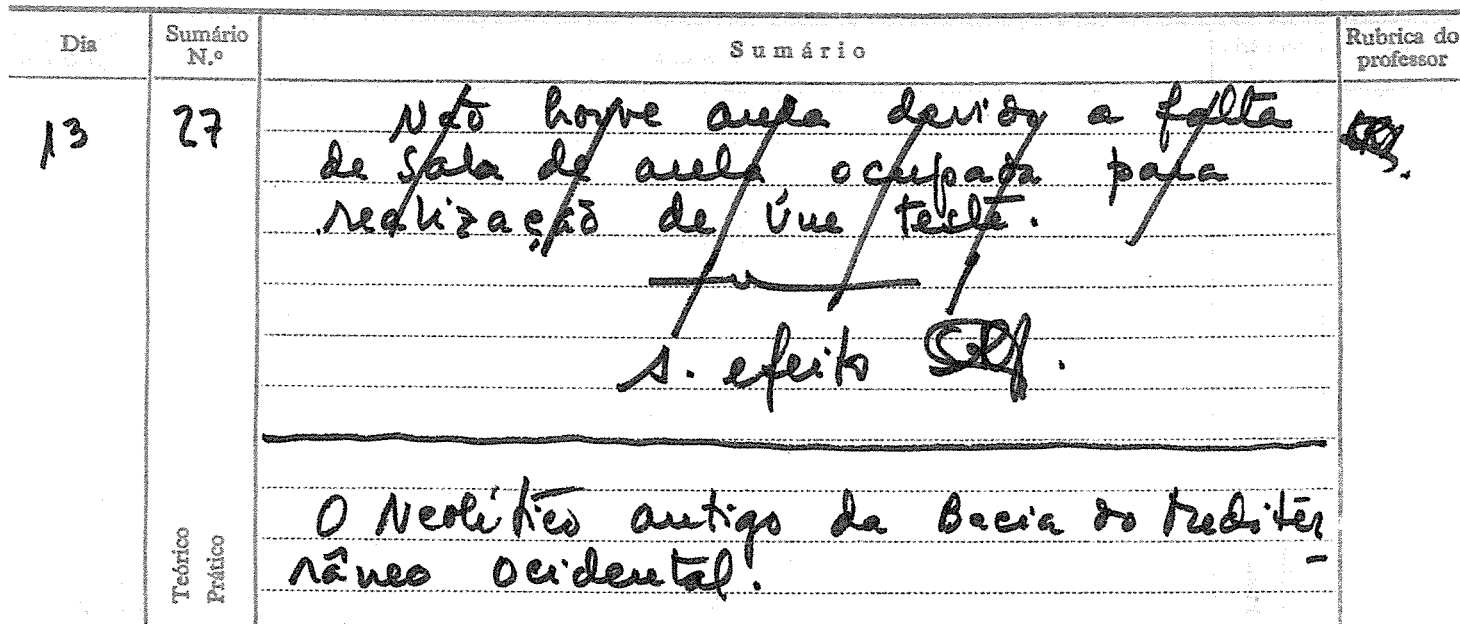 Dia
Sumário N.º
Sumário
Rubrica do professor
13
27
Não houve aula devido a falta
de sala de aula, ocupada para
realização de um teste.
s. efeito
O Neolítico antigo da Bacia do Mediter
râneo ocidental.
Teórico
Prático